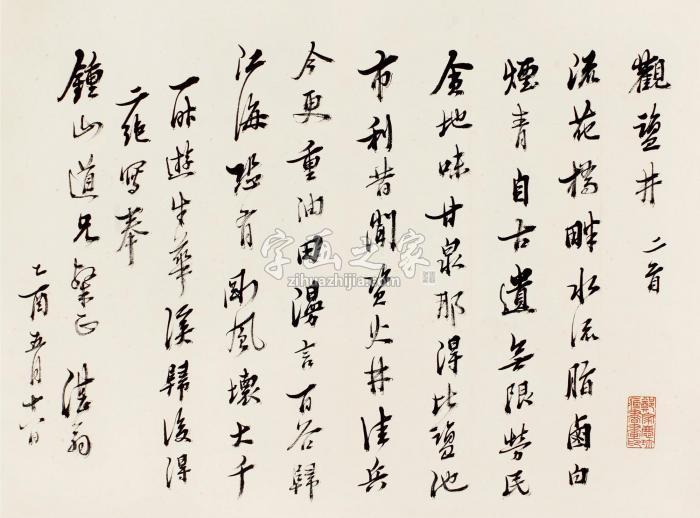 觀鹽井 二首
花橋畔水流脂鹵白
煙青自古遺無限勞民
食地味甘泉那得比鹽池
市利昔聞資火井佳兵
今更重油田漫言百谷歸
江海恐有剛風壞大千
一昨遊牛華溪歸後得
二絕寫奉
鍾山道兄粲正 湛翁
乙酉五月十日
字画之家
zihuazhijia.com